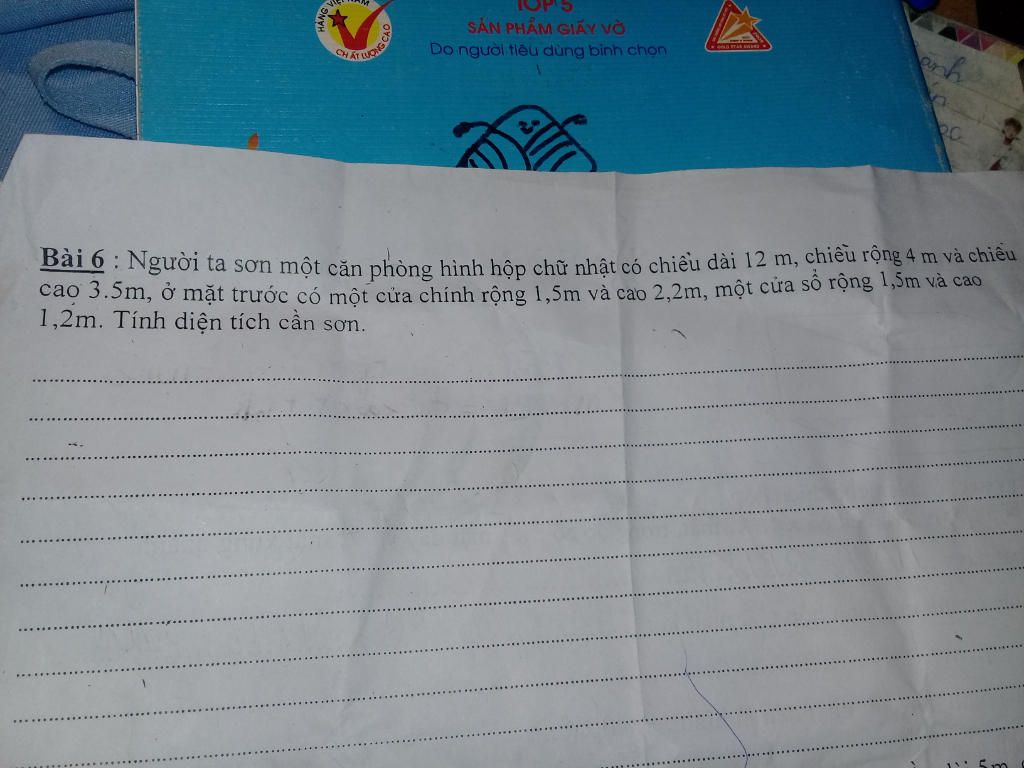 HÀNG VIỆT NAM
CHẤT LƯỢNG CAO
TOP 5
SẢN PHẨM GIẤY VỞ
Do người tiêu dùng bình chọn
GOLD STAR AWARD
anh
Bài 6 : Người ta sơn một căn phòng hình hộp chữ nhật có chiều dài 12 m, chiều rộng 4 m và chiều
cao 3.5m, ở mặt trước có một cửa chính rộng 1,5m và cao 2,2m, một cửa sổ rộng 1,5m và cao
1,2m. Tính diện tích cần sơn.